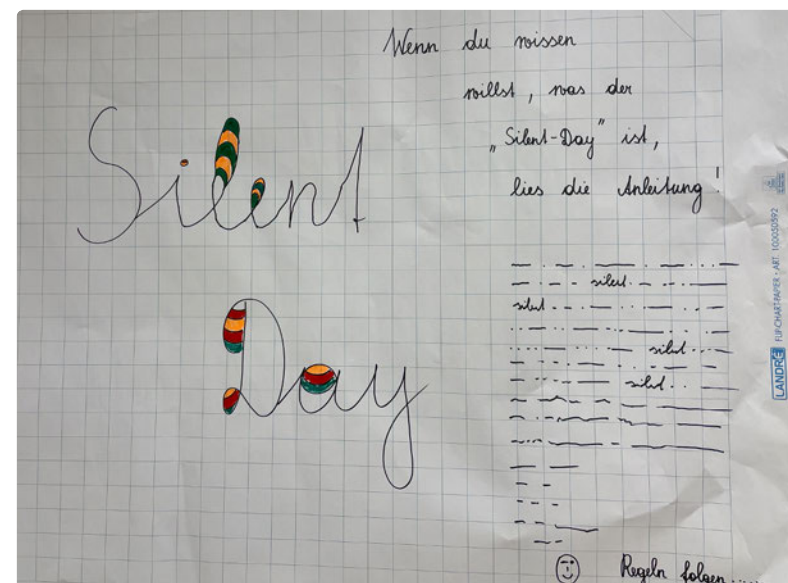 Silent
Day
Wenn du wissen
willst, was der
„Silent-Day" ist,
lies die Anleitung!
silent
silent
silent
silent
Regeln folgen....
LANDRÉ FLIPCHART-PAPIER · ART. 100050592